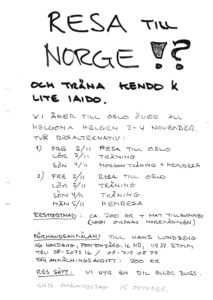 RESA TILL
NORGE !?
OCH TRÄNA KENDO &
LITE IAIDO.
VI ÅKER TILL OSLO ÖVER ALL
HELGONA HELGEN 3-4 NOVEMBER.
TVÅ RESALTERNATIV:
1) FRE 2/11 RESA TILL OSLO
LÖR 3/11 TRÄNING
SÖN 4/11 MORGON TRÄNING + HEMRESA
2) FRE 2/11 RESA TILL OSLO
LÖR 3/11 TRÄNING
SÖN 4/11 TRÄNING
MÅN 5/11 HEMRESA
RESKOSTNAD: CA. 200 KR + MAT TILLKOMMER
(LOGI ORDNAR NORRMÄNNEN)
FÖRHANDSANMÄLAN: TILL HANS LUNDBERG
TEL 08-
ANMÄLNINGSAVGIFT: 200 KR
RES SÄTT: VI HYR EN BIL ELLER BUSS.
SISTA ANMÄLNINGSDAG 15 OKTOBER.